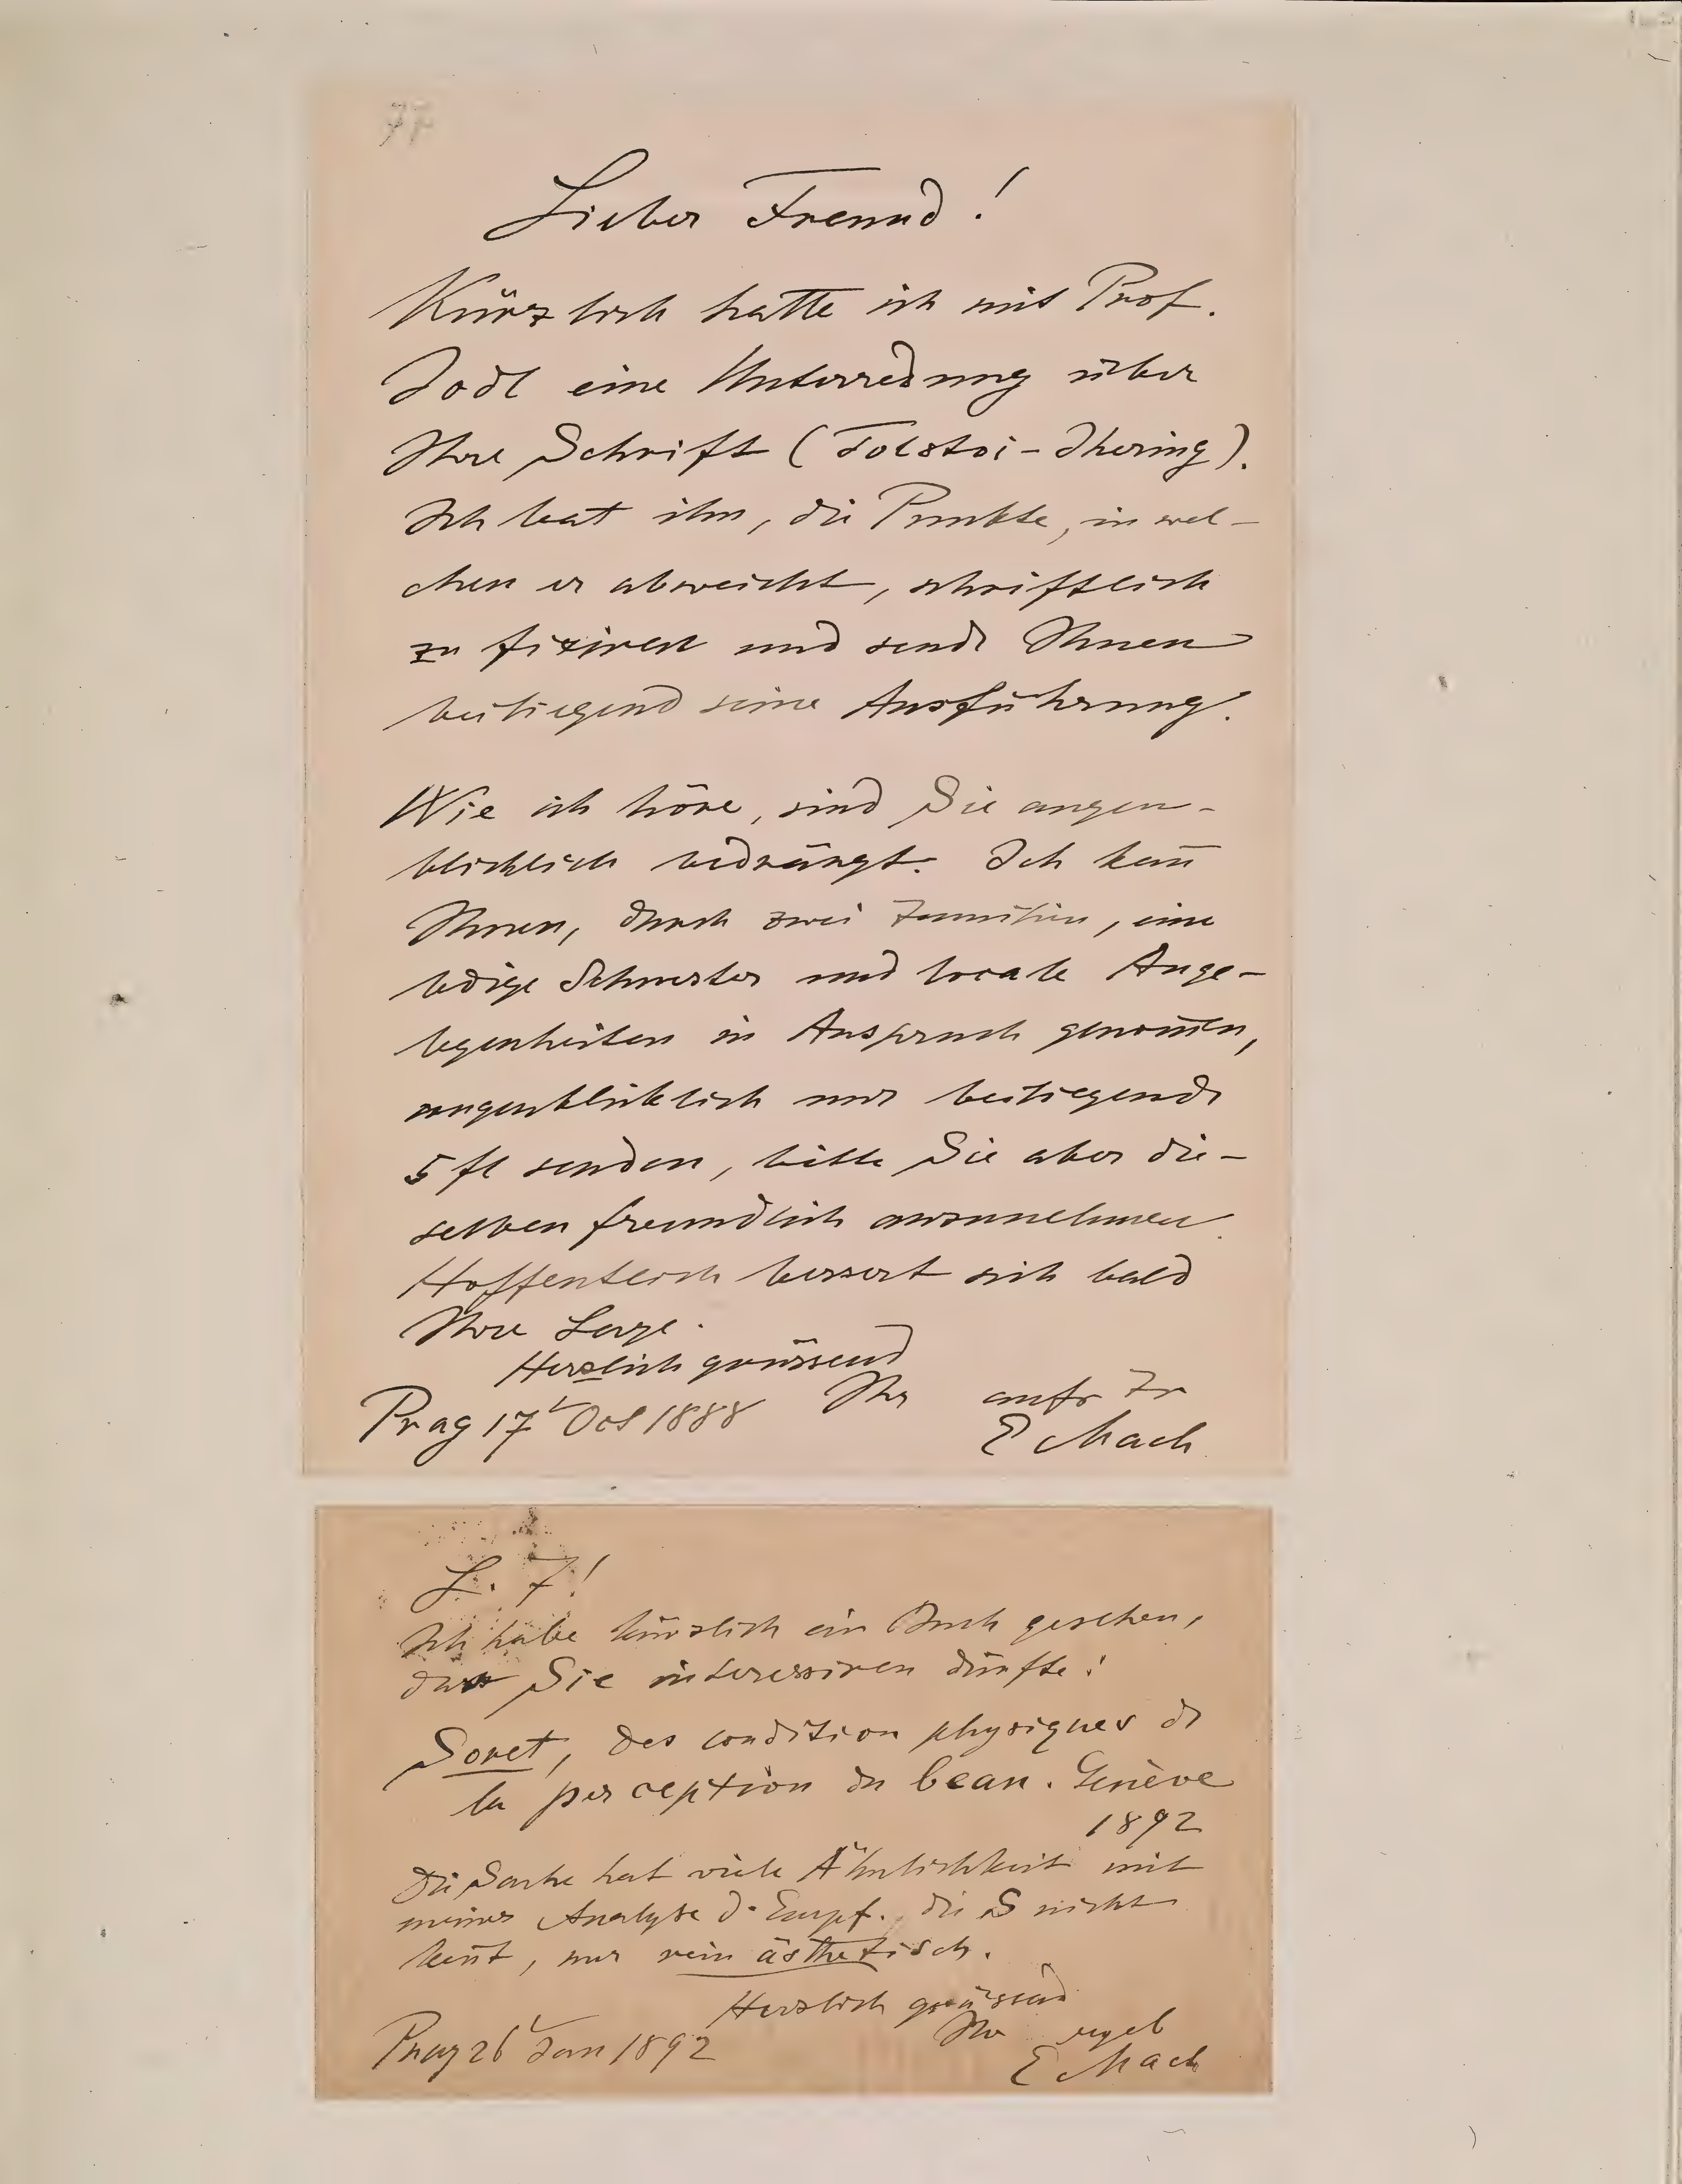 77
Lieber Freund!
Kürzlich hatte ich mit Prof.
Jodl eine Unterredung über
Ihre Schrift (Tolstoi-Ihering).
Ich bat ihn, die Punkte, in wel-
chen er abweicht, schriftlich
zu fixiren und sende Ihnen
beiliegend seine Ausführung.
Wie ich höre, sind Sie augen-
blicklich bedrängt. Ich kan̄
Ihnen, durch zwei Familien, eine
ledige Schwester und locale Ange-
legenheiten in Anspruch genom̄en,
augenblicklich nur beiliegende
5 fl senden, bitte Sie aber die-
selben freundlich anzunehmen.
Hoffentlich bessert sich bald
Ihre Lage.
Herzlich grüssend
Ihr aufr Fr
Prag 17t Oct 1888
E Mach
L. F!
Ich habe kürzlich ein Buch gesehen,
das Sie interessiren dürfte:
Soret, des condition physiques de
la perception du beau. Genève
1892
Die Sache hat viele Ähnlichkeit mit
meiner Analyse d. Empf. die S nicht
ken̄t, nur rein ästhetisch.
Herzlich grüssend
Ihr ergeb
Prag 26t Jan 1892
E Mach